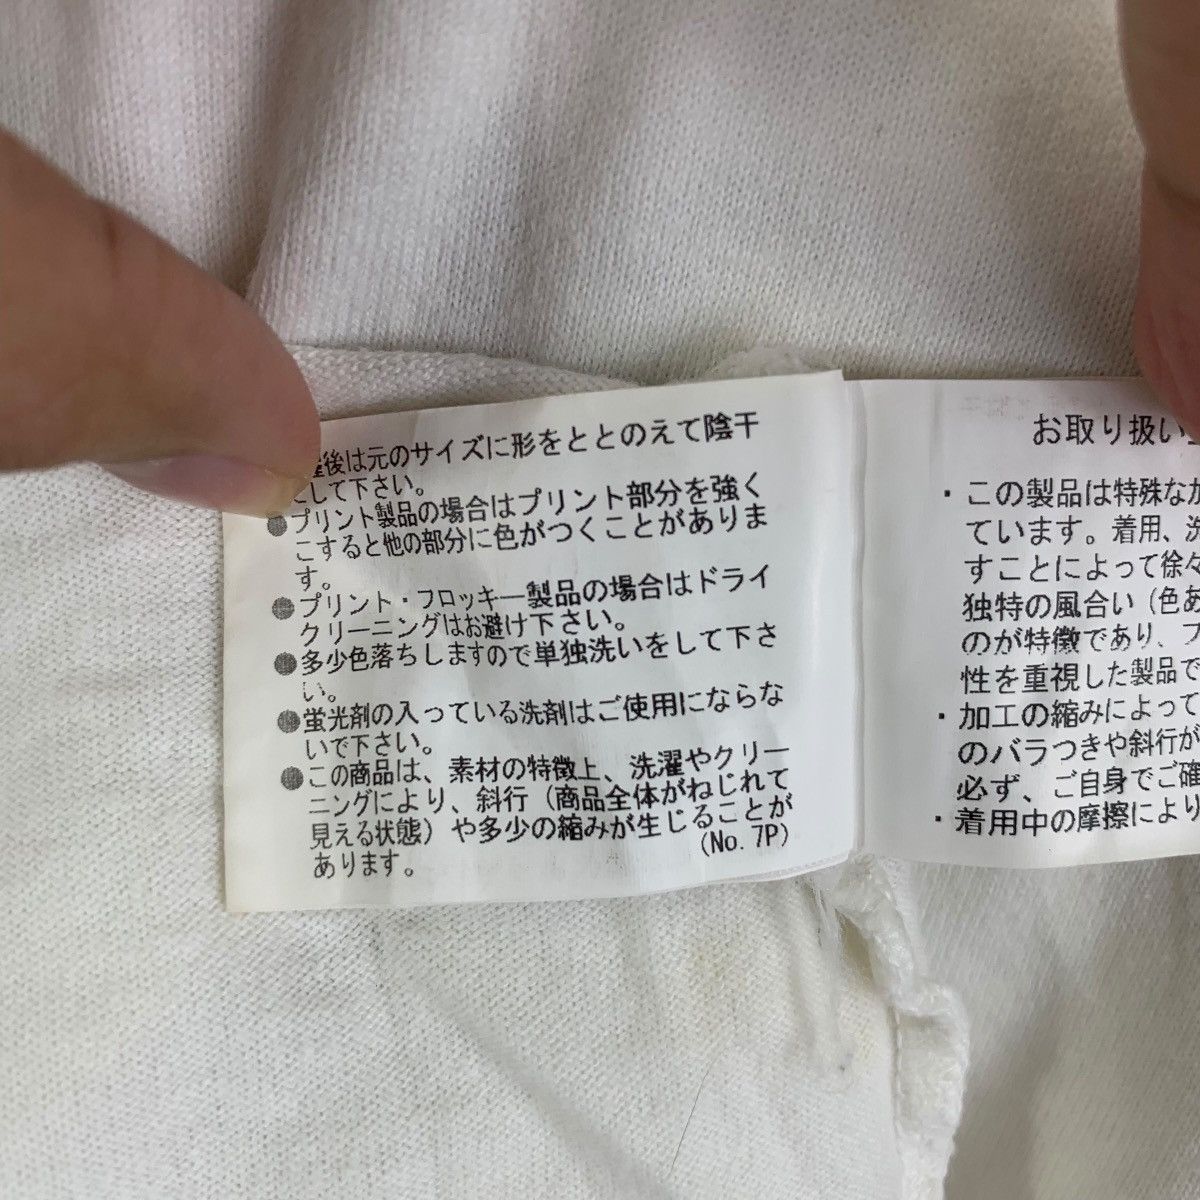 後は元のサイズに形をととのえて陰干
にして下さい。
●プリント製品の場合はプリント部分を強く
こすると他の部分に色がつくことがありま
す。
●プリント・フロッキー製品の場合はドライ
クリーニングはお避け下さい。
●多少色落ちしますので単独洗いをして下さ
い。
●蛍光剤の入っている洗剤はご使用にならな
いで下さい。
●この商品は、素材の特徴上、洗濯やクリー
ニングにより、斜行（商品全体がねじれて
見える状態）や多少の縮みが生じることが
あります。
(No. 7P)
お取り扱い
・この製品は特殊な
ています。着用、洗
すことによって徐々
独特の風合い（色あ
のが特徴であり、フ
性を重視した製品で
・加工の縮みによって
のバラつきや斜行が
必ず、ご自身でご確
・着用中の摩擦により